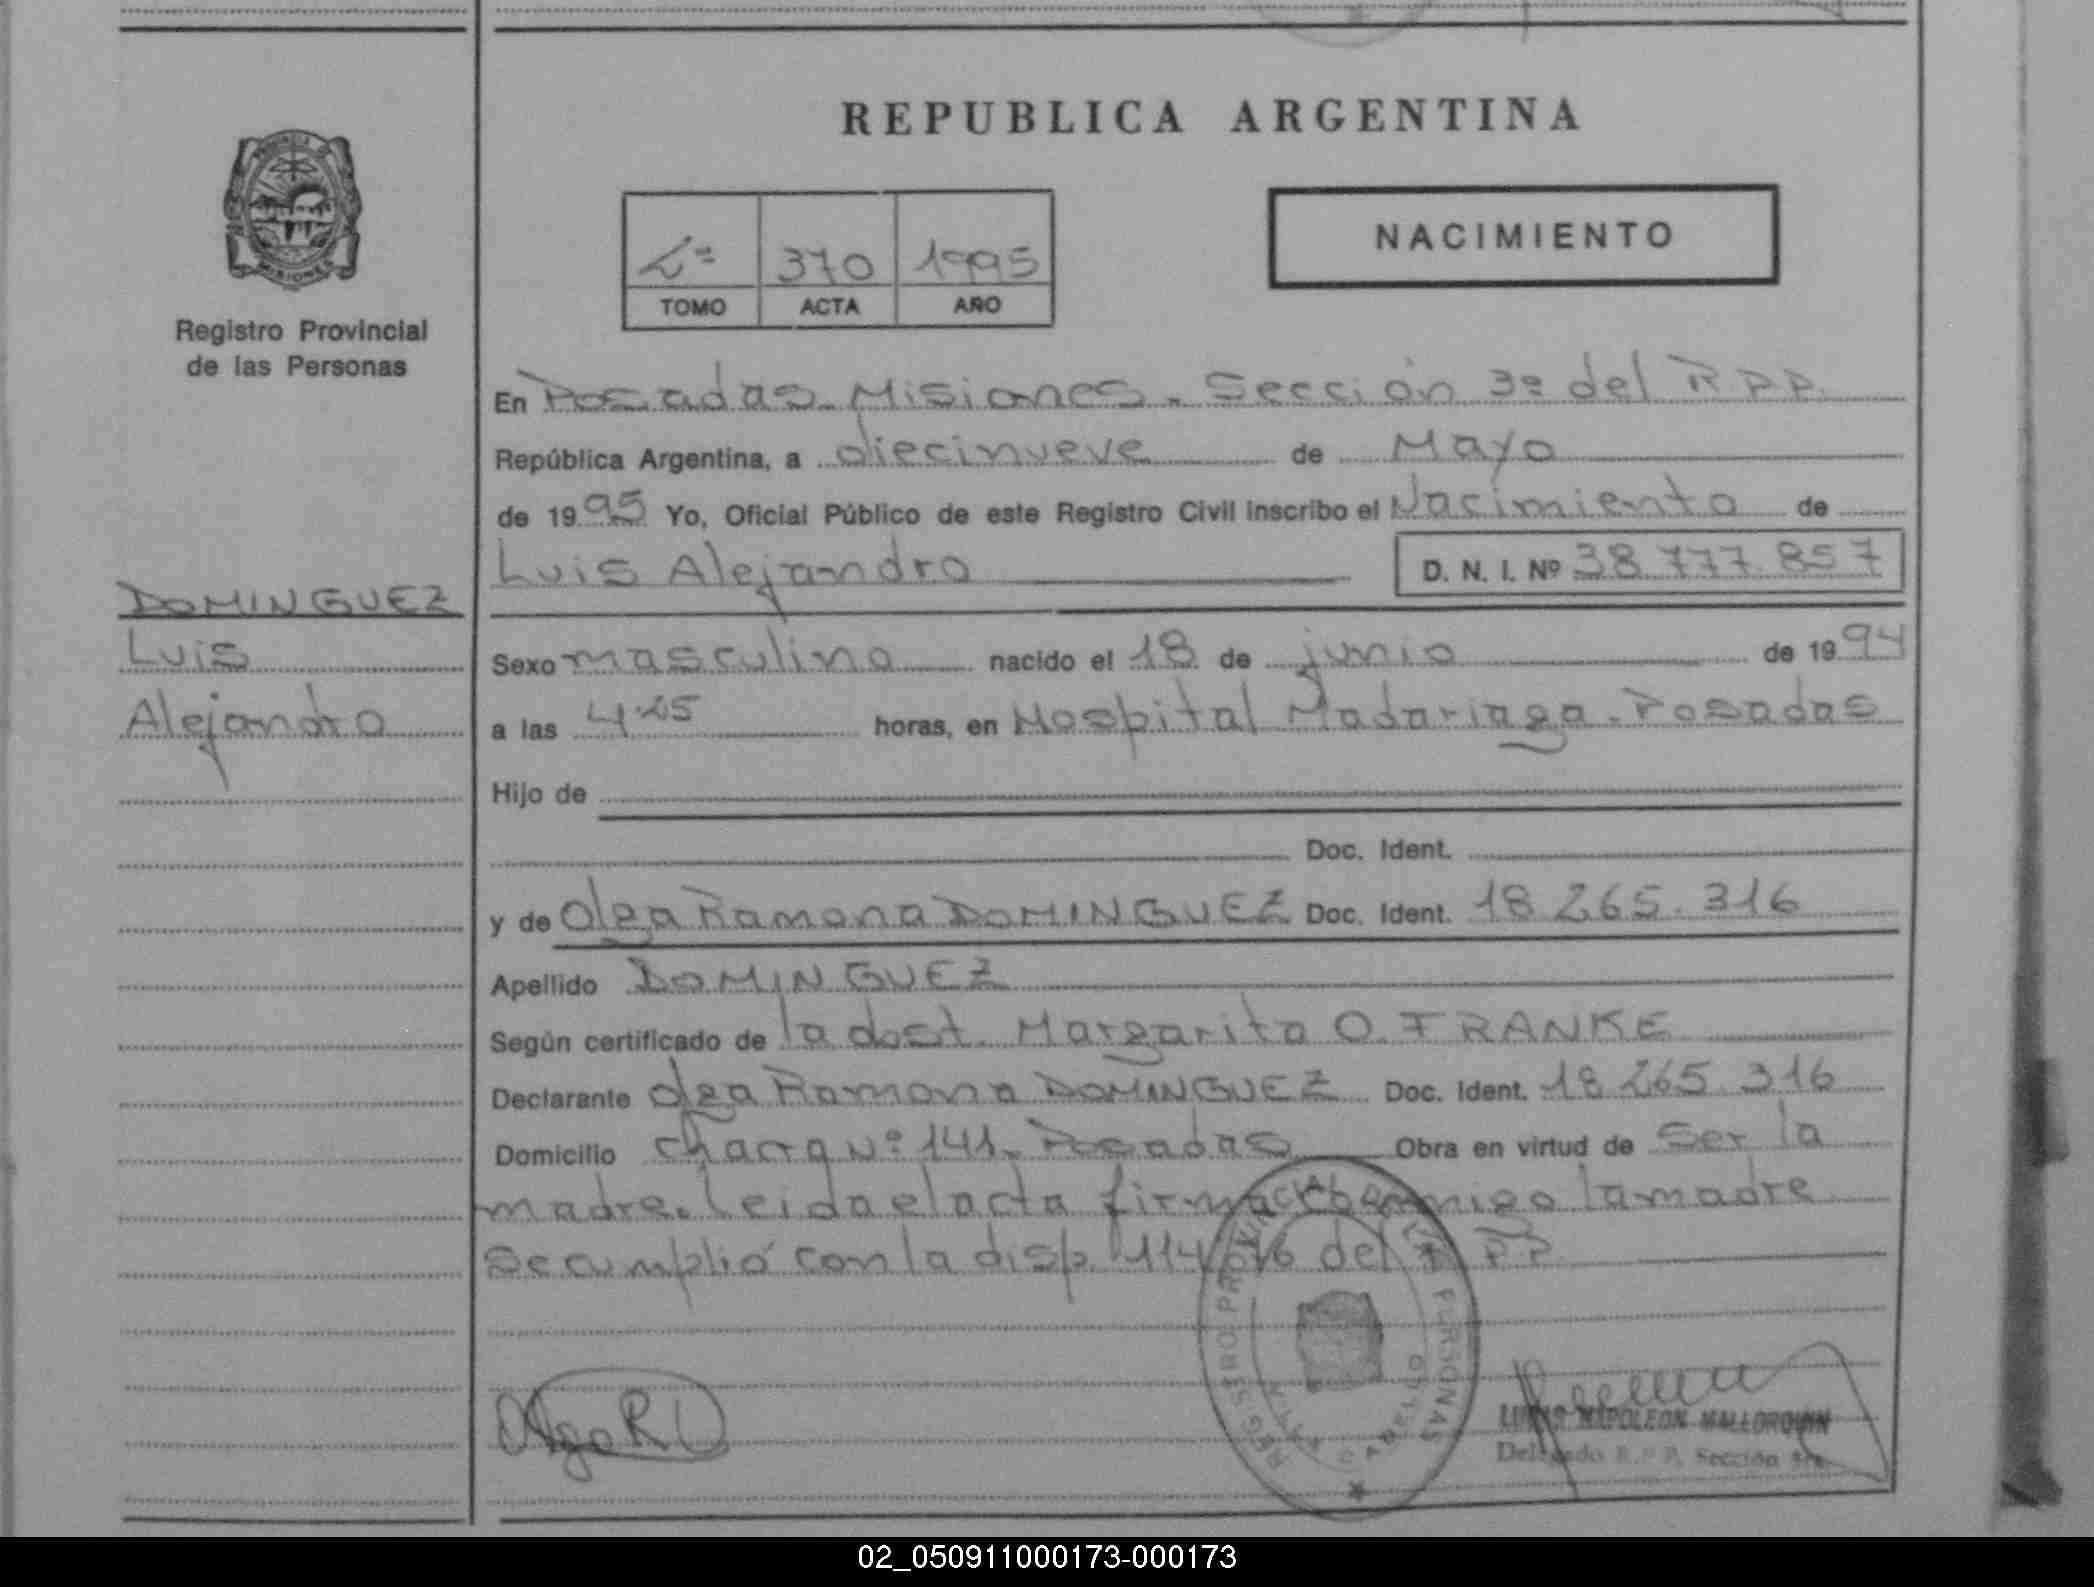 REPUBLICA ARGENTINA
NACIMIENTO
370 1995
TOMO ACTA AÑO
PROVINCIA DE
MISIONES
Registro Provincial
de las Personas
DOMINGUEZ
Luis
Alejandro
En Posadas Misiones. Sección 3ª del R P P.
República Argentina, a diecinueve de Mayo
de 1995 Yo, Oficial Público de este Registro Civil inscribo el Nacimiento de
Luis Alejandro D. N. I. Nº 38.777.857
Sexo masculino nacido el 18 de junio de 1994
a las horas, en Hospital Madariaga. Posadas
Hijo de
Doc. Ident.
y de Olga Ramona DOMINGUEZ Doc. Ident. 18.265.316
Apellido DOMINGUEZ
Según certificado de la dost. Margarita O. FRANKE
Declarante Olga Ramona DOMINGUEZ Doc. Ident. 18.265.316
Domicilio Chacra Nº 141. Posadas Obra en virtud de Ser la
madre. Leida el acta firma conmigo la madre
Se cumplió con la disp. 114/ del R P P.
Olga R D
REGISTRO PROVINCIAL DE LAS PERSONAS
LUCAS NAPOLEON MALLORQUIN
Delegado R.P.P. Sección 3ra.
02_050911000173-000173